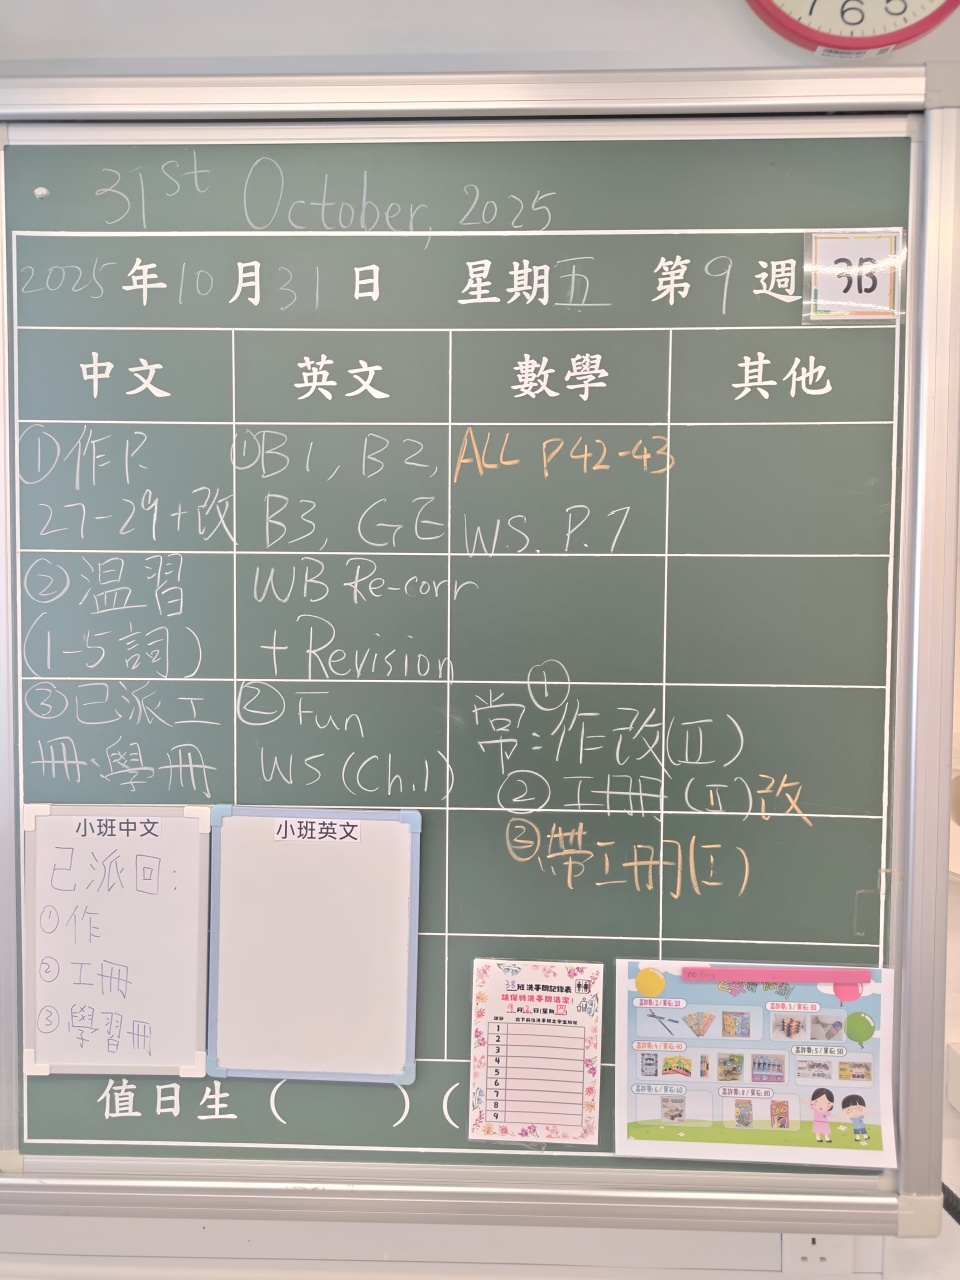 7 6 5
31st October, 2025
2025年10月31日 星期五 第9週 3B
中文 英文 數學 其他
①作P.
27-29+改
②温習
(1-5詞)
③已派工
冊、學冊
①B1, B2,
B3, GE
WB Re-corr
+ Revision
②Fun
WS (Ch.1)
ALL P42-43
W.S. P.7
①
常:作改(II)
②工冊(II)改
③帶工冊(I)
小班中文
已派回:
①作
②工冊
③學習冊
小班英文
3B班洗手間記錄表
請保持洗手間清潔!
1
2
3
4
5
6
7
8
9
值日生 ( ) (